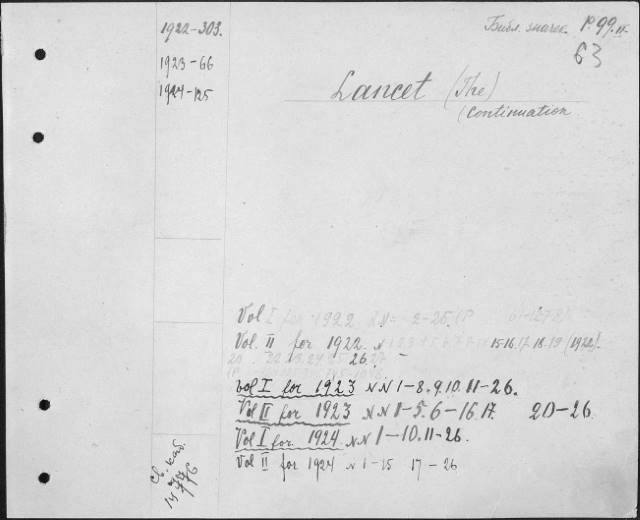 1922-303.
1923-66
1924-125
Библ. значек. P.99.II.
63
Lancet (The)
(Continuation
Vol I for 1922 2-26.
Vol. II for 1922. N 15.16.17 18.19 (1922).
26.
vol I for 1923 N N 1-8.9.10.11-26.
Vol II for 1923 N N 1-5.6-16.17. 20-26
Vol I for 1924. N N 1-10.11-26.
Vol II for 1924 N 1-15 17-26